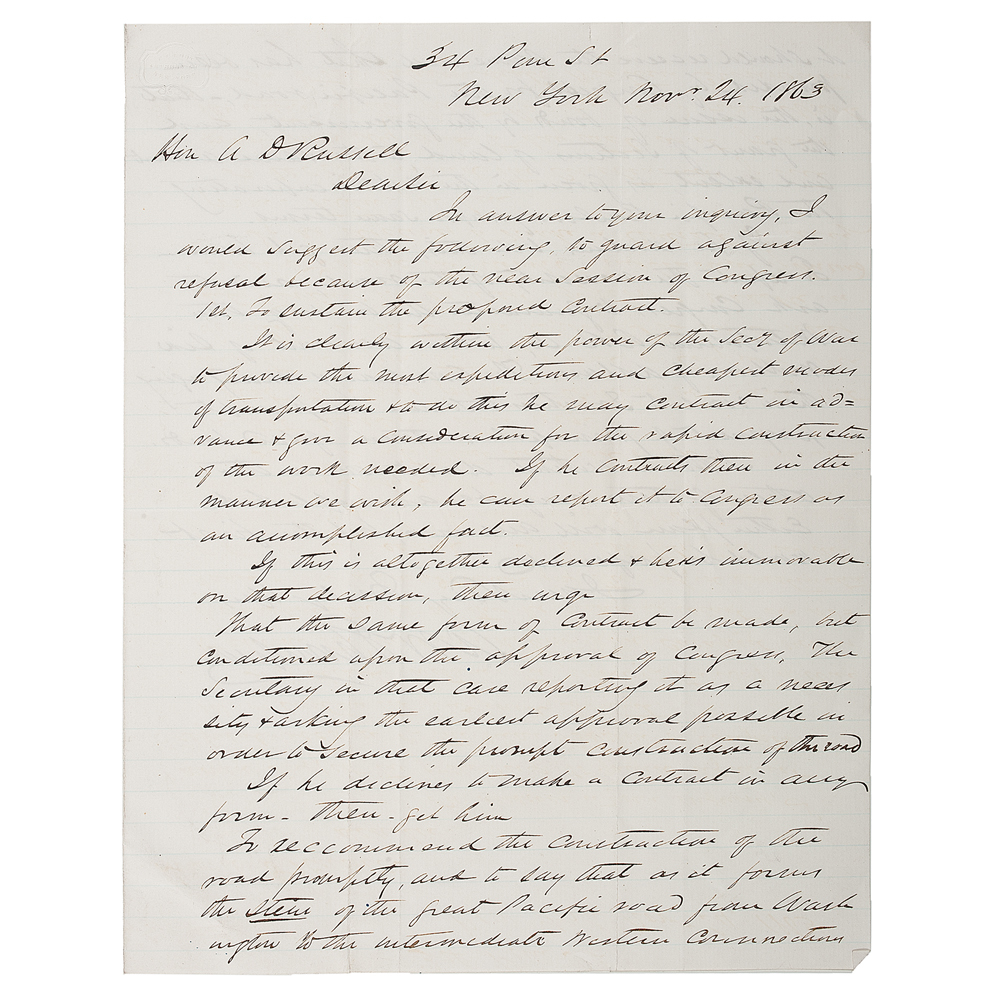 34 Pine St
New York Novr. 24. 1863
Hon A D Russell
Dear Sir
In answer to your inquiry, I
would suggest the following, to guard against
refusal because of the near Session of Congress.
1st, To sustain the proposed Contract.
It is clearly within the power of the Secy of War
to provide the most expeditious and cheapest modes
of transportation & to do this he may Contract in ad=
vance & give a consideration for the rapid construction
of the work needed. If he contracts then in the
manner we wish, he can report it to Congress as
an accomplished fact.
If this is altogether declined & he is immovable
on that decission, then urge
That the same form of Contract be made, but
conditioned upon the approval of Congress, The
Secretary in that case reporting it as a neces
sity & asking the earliest approval possible in
order to secure the prompt construction of the road
If he declines to make a Contract in any
form - then - get him
To reccommend the construction of the
road promptly, and to say that as it forms
the stem of the great Pacific road from Wash
ington to the intermediate Western Connections